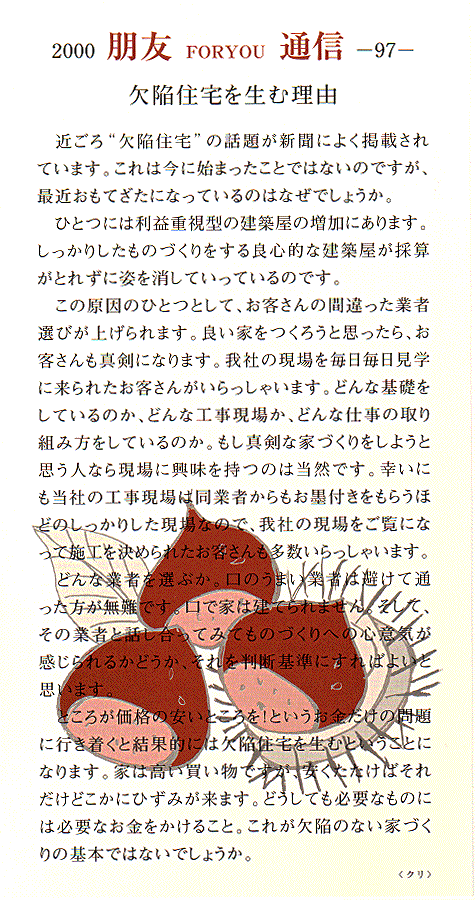 2000 朋友 FORYOU 通信 −97−
欠陥住宅を生む理由
近ごろ“欠陥住宅”の話題が新聞によく掲載され
ています。これは今に始まったことではないのですが、
最近おもてざたになっているのはなぜでしょうか。
ひとつには利益重視型の建築屋の増加にあります。
しっかりしたものづくりをする良心的な建築屋が採算
がとれずに姿を消していっているのです。
この原因のひとつとして、お客さんの間違った業者
選びが上げられます。良い家をつくろうと思ったら、お
客さんも真剣になります。我社の現場を毎日毎日見学
に来られたお客さんがいらっしゃいます。どんな基礎を
しているのか、どんな工事現場か、どんな仕事の取り
組み方をしているのか。もし真剣な家づくりをしようと
思う人なら現場に興味を持つのは当然です。幸いに
も当社の工事現場は同業者からもお墨付きをもらうほ
どのしっかりした現場なので、我社の現場をご覧にな
って施工を決められたお客さんも多数いらっしゃいます。
どんな業者を選ぶか。口のうまい業者は避けて通
った方が無難です。口で家は建てられません。そして、
その業者と話し合ってみてものづくりへの心意気が
感じられるかどうか、それを判断基準にすればよいと
思います。
ところが価格の安いところを!というお金だけの問題
に行き着くと結果的には欠陥住宅を生むということに
なります。家は高い買い物ですが、安くたたけばそれ
だけどこかにひずみが来ます。どうしても必要なものに
は必要なお金をかけること。これが欠陥のない家づく
りの基本ではないでしょうか。
〈クリ〉